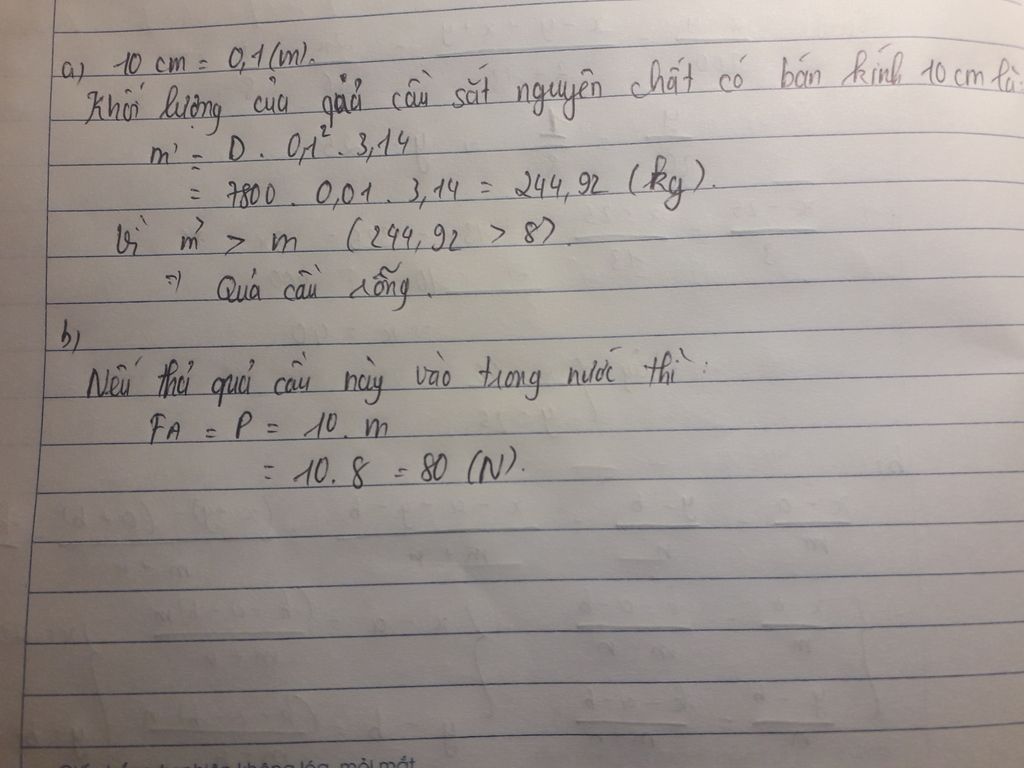 a) 10 cm = 0,1 (m).
Khối lượng của quả cầu sắt nguyên chất có bán kính 10 cm là:
m' = D . 0,1² . 3,14
= 7800 . 0,01 . 3,14 = 244,92 (kg).
Vì m' > m (244,92 > 8)
=> Quả cầu rỗng.
b)
Nếu thả quả cầu này vào trong nước thì:
FA = P = 10 . m
= 10 . 8 = 80 (N).